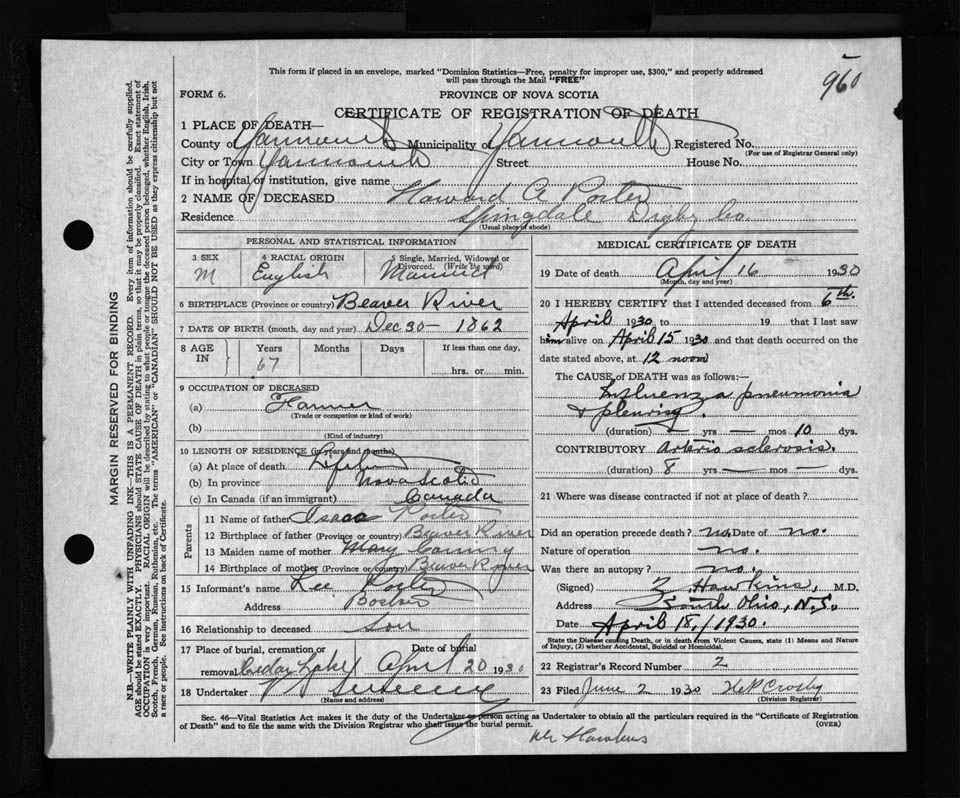 960
This form if placed in an envelope, marked "Dominion Statistics—Free, penalty for improper use, $300," and properly addressed
will pass through the Mail "FREE"
FORM 6.
PROVINCE OF NOVA SCOTIA
CERTIFICATE OF REGISTRATION OF DEATH
1 PLACE OF DEATH—
County of Yarmouth Municipality of Yarmouth Registered No.
(For use of Registrar General only)
City or Town Yarmouth Street House No.
If in hospital or institution, give name
2 NAME OF DECEASED Howard A Porter
Residence Springdale Digby Co.
(Usual place of abode)
PERSONAL AND STATISTICAL INFORMATION
3 SEX M
4 RACIAL ORIGIN English
5 Single, Married, Widowed or Divorced. (Write the word) Married
6 BIRTHPLACE (Province or country) Beaver River
7 DATE OF BIRTH (month, day and year) Dec 30 – 1862
8 AGE IN Years 67 Months Days If less than one day, hrs. or min.
9 OCCUPATION OF DECEASED
(a) Farmer
(Trade or occupation or kind of work)
(b)
(Kind of industry)
10 LENGTH OF RESIDENCE (in years and months)
(a) At place of death
(b) In province Nova Scotia
(c) In Canada (if an immigrant) Canada
Parents
11 Name of father Isaac Porter
12 Birthplace of father (Province or country) Beaver River
13 Maiden name of mother Mary
14 Birthplace of mother (Province or country) Beaver River
15 Informant's name Lee Porter
Address Boston
16 Relationship to deceased Son
17 Place of burial, cremation or removal Cedar Lake Date of burial April 20 1930
18 Undertaker
(Name and address)
MEDICAL CERTIFICATE OF DEATH
19 Date of death April 16 1930
(Month, day and year)
20 I HEREBY CERTIFY that I attended deceased from 6th.
April 1930 to 19 that I last saw
him alive on April 15 1930 and that death occurred on the
date stated above, at 12 noon
The CAUSE of DEATH was as follows:—
Influenza pneumonia
& pleurisy.
(duration) — yrs — mos 10 dys.
CONTRIBUTORY Arterio sclerosis.
(duration) 8 yrs — mos — dys.
21 Where was disease contracted if not at place of death?
Did an operation precede death? no. Date of no.
Nature of operation no.
Was there an autopsy? no.
(Signed) Z Hawkins, M.D.
Address South Ohio, N.S.
Date April 18,/1930.
State the Disease causing Death, or in death from Violent Causes, state (1) Means and Nature
of Injury, (2) whether Accidental, Suicidal or Homicidal.
22 Registrar's Record Number 2
23 Filed June 2 1930 Crosby
(Division Registrar)
Sec. 46—Vital Statistics Act makes it the duty of the Undertaker or person acting as Undertaker to obtain all the particulars required in the "Certificate of Registration
of Death" and to file the same with the Division Registrar who shall issue the burial permit.
(OVER)
Dr Hawkins
MARGIN RESERVED FOR BINDING
N.B.—WRITE PLAINLY WITH UNFADING INK—THIS IS A PERMANENT RECORD. Every item of information should be carefully supplied.
AGE should be stated EXACTLY. PHYSICIANS should STATE CAUSE OF DEATH in plain terms, so that it may be properly classified. Exact statement of
OCCUPATION is very important. RACIAL ORIGIN will be described by stating to what people or tongue the deceased person belonged, whether English, Irish,
Scotch, French, German, Russian, Ruthenian, etc. The terms "AMERICAN" or "CANADIAN" SHOULD NOT BE USED as they express citizenship but not
a race or people. See instructions on back of Certificate.